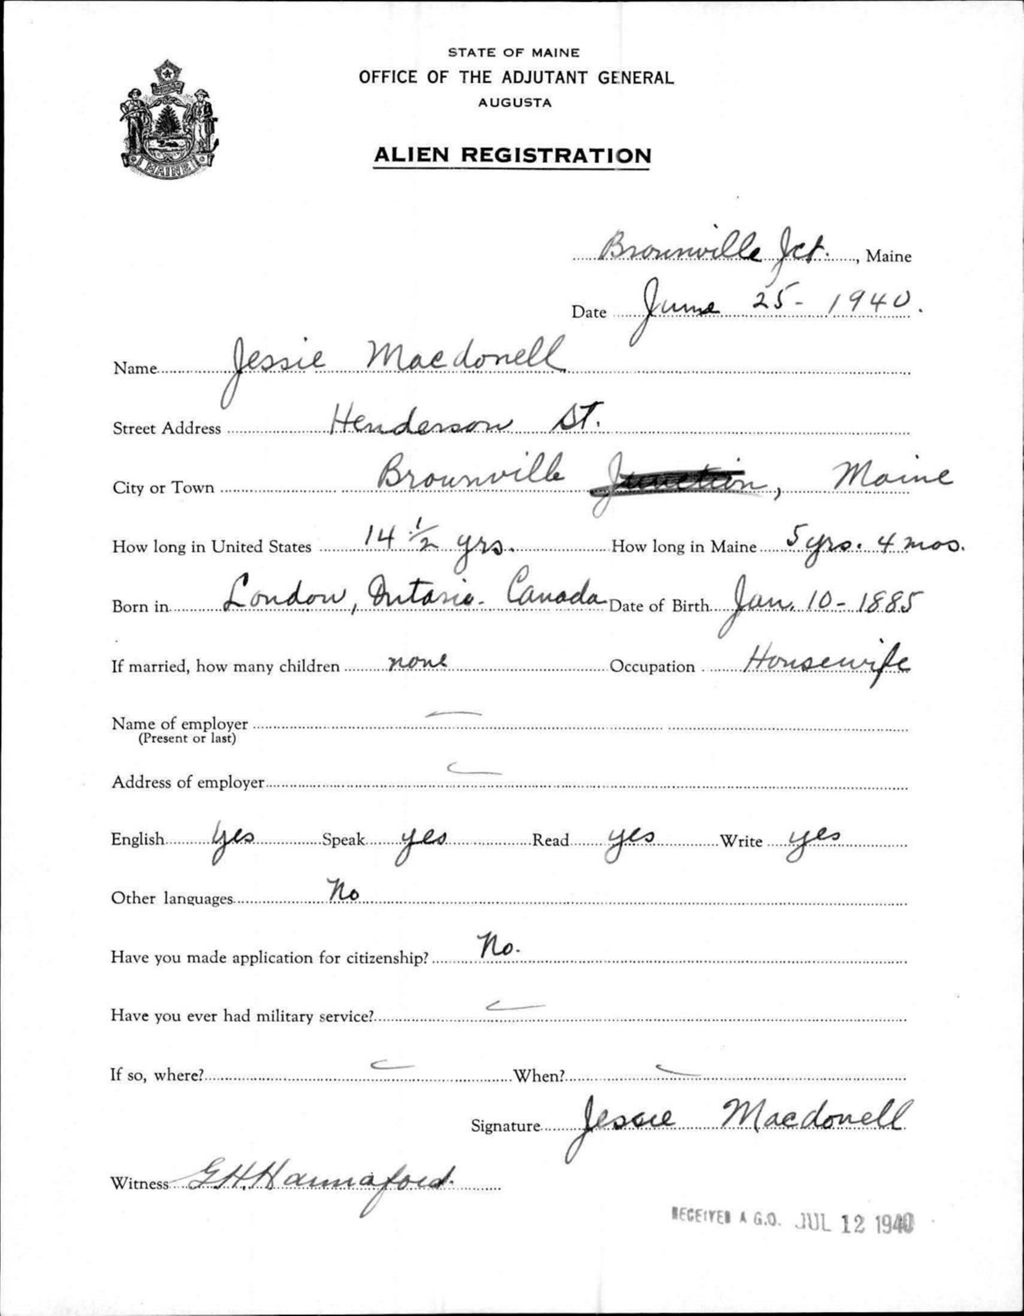 STATE OF MAINE
OFFICE OF THE ADJUTANT GENERAL
AUGUSTA
ALIEN REGISTRATION
MAINE
Brownville Jct., Maine
Date June 25 - 1940.
Name Jessie Macdonell
Street Address Henderson St.
City or Town Brownville Junction, Maine
How long in United States 14 1/2 yrs. How long in Maine 5 yrs. 4 mos.
Born in London, Ontario - Canada Date of Birth Jan. 10 - 1885
If married, how many children none Occupation Housewife
Name of employer —
(Present or last)
Address of employer —
English Yes Speak yes Read yes Write yes
Other languages No
Have you made application for citizenship? No.
Have you ever had military service? —
If so, where? — When? —
Signature Jessie Macdonell
Witness G.H. Hannaford.
RECEIVED A.G.O. JUL 12 1940